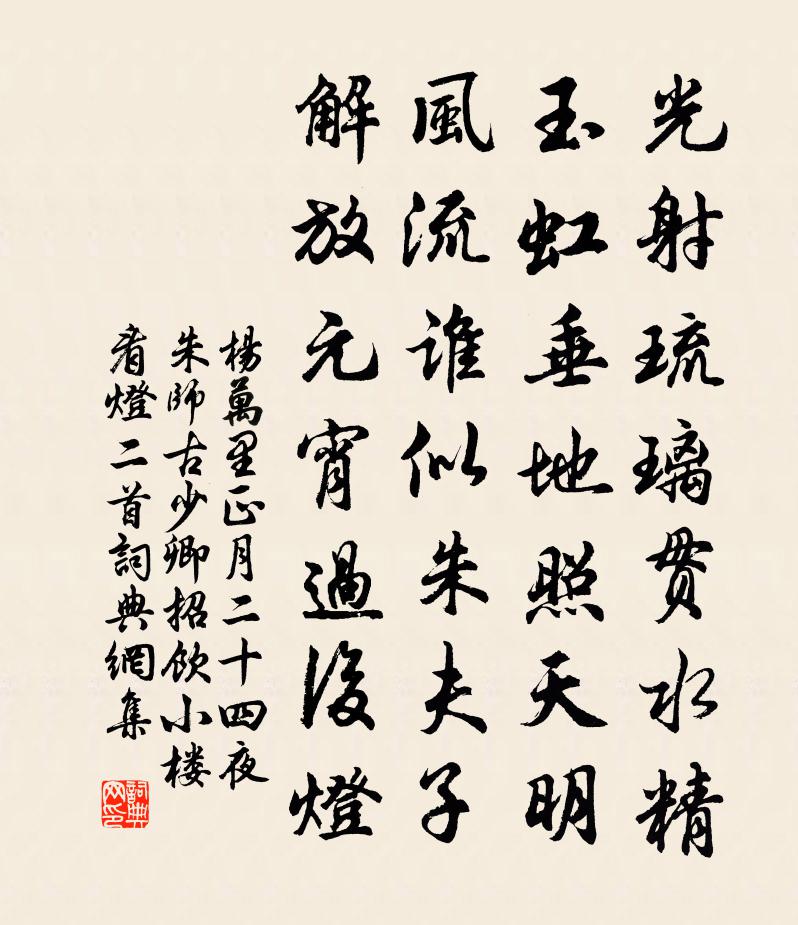 光射琉璃贯水精
玉虹垂地照天明
風流谁似朱夫子
解放元宵過後燈
楊萬里正月二十四夜
朱師古少卿招飲小楼
看燈二首詞典網集
詞典网印